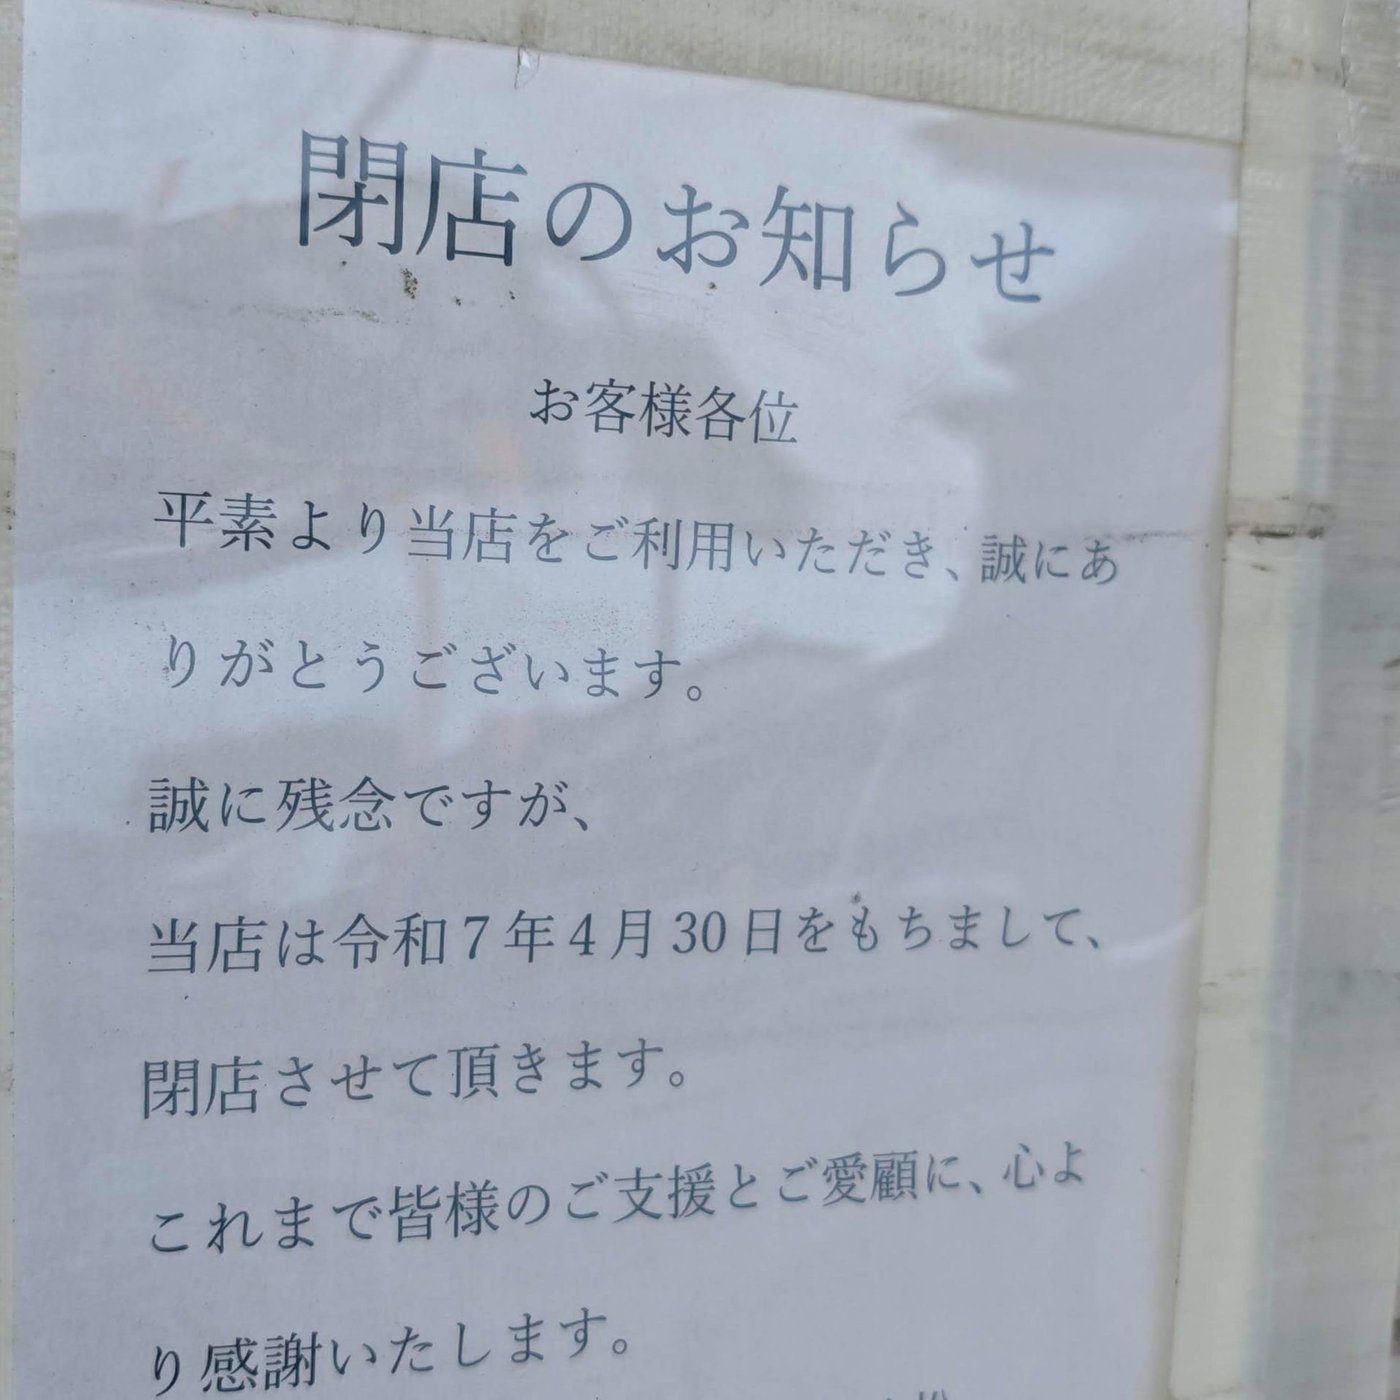 閉店のお知らせ
お客様各位
平素より当店をご利用いただき、誠にあ
りがとうございます。
誠に残念ですが、
当店は令和7年4月30日をもちまして、
閉店させて頂きます。
これまで皆様のご支援とご愛顧に、心よ
り感謝いたします。